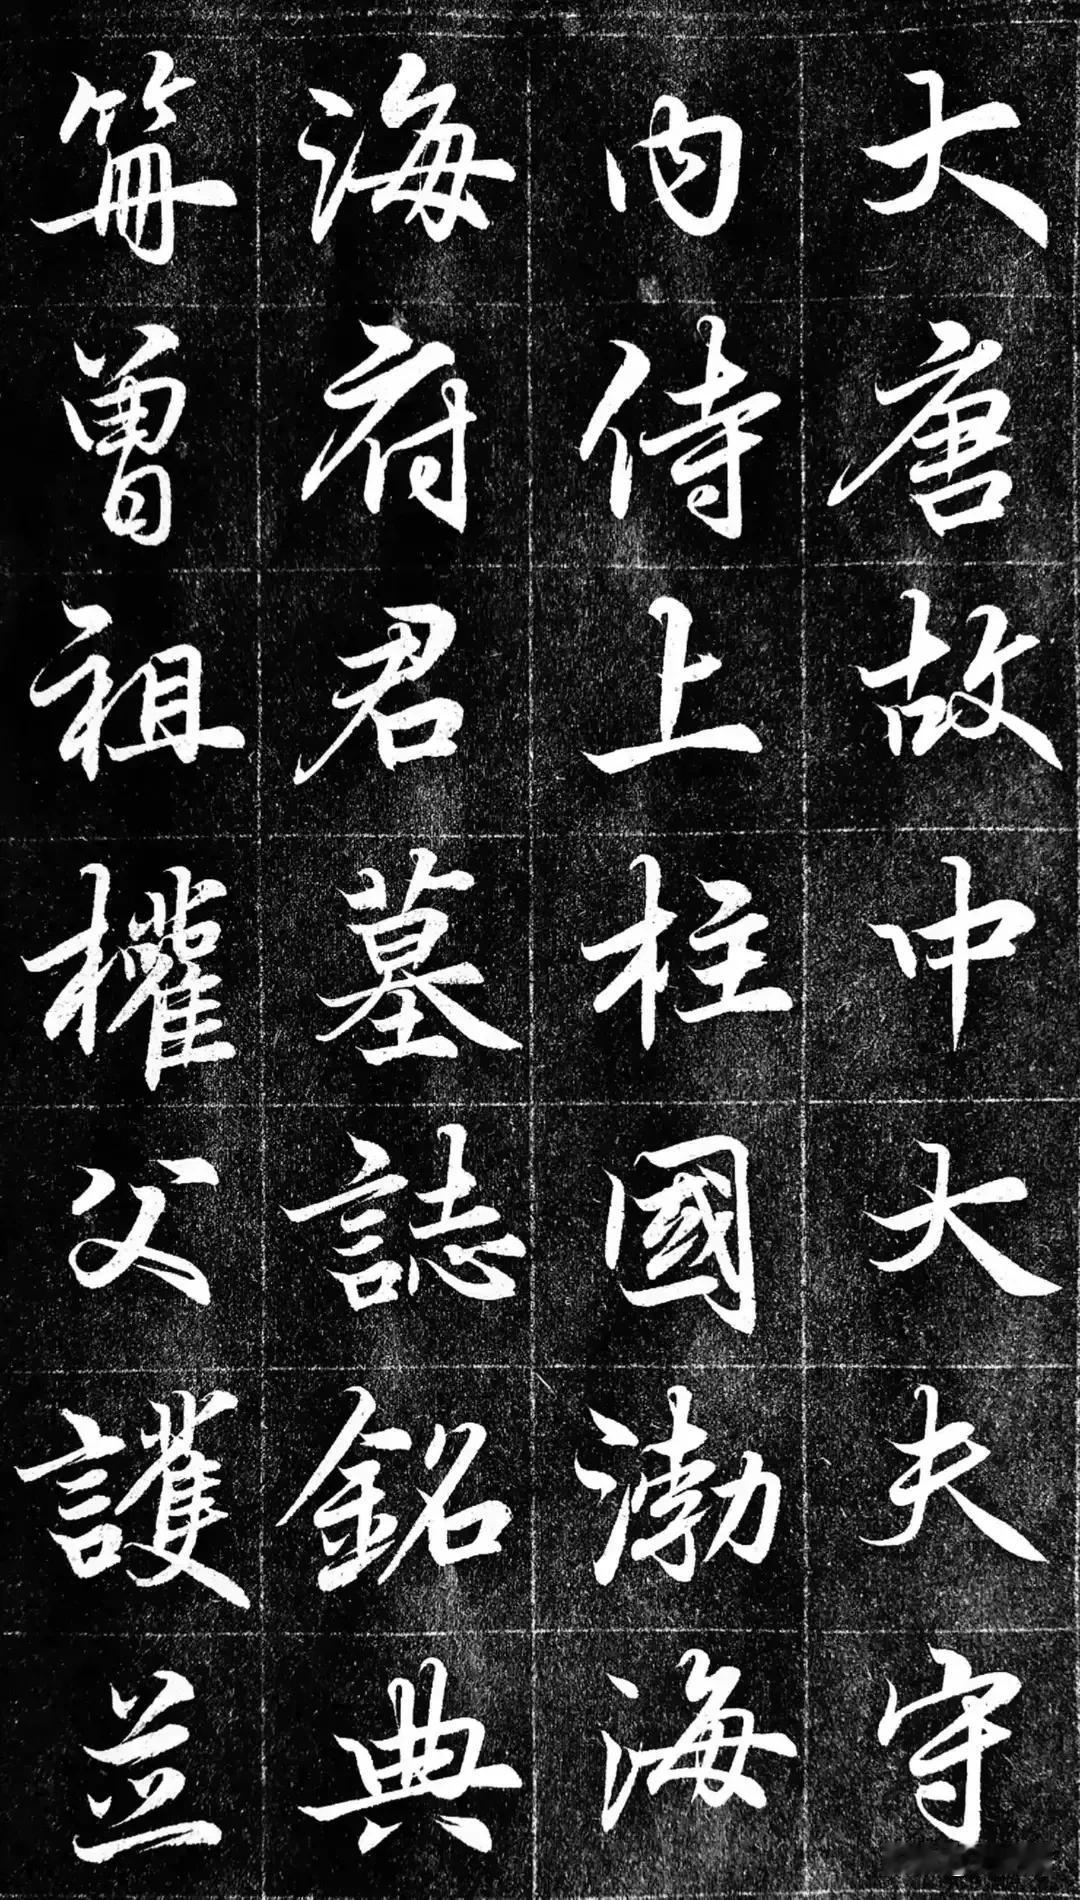 大唐故中大夫守
內侍上柱國渤海
海府君墓誌銘典
筭曾祖權父護並